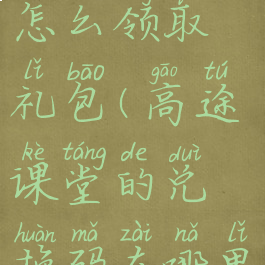 怎么领取
lǐ bāo gāo tú
礼包(高途
kè táng de duì
课堂的兑
huàn mǎ zài nǎ lǐ
换码在哪里